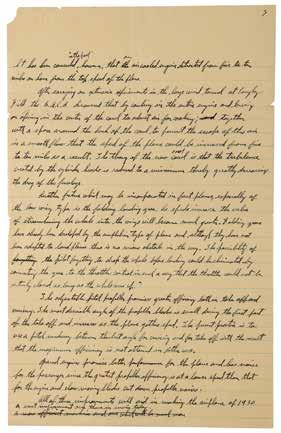 3
It has been conceded, however, that an air cooled engine detracted from five to ten
miles an hour from the top speed of the plane.
After carrying on extensive experiments in the large wind tunnel at Langley
Field the N.A.C.A. discovered that by cowling in the entire engine and leaving
an opening in the center of the cowl to admit air for cooling, together
with a space around the back of the cowl to permit the escape of this air
in a smooth flow that the speed of the plane could be increased from five
to ten miles as a result. The theory of the new cowl is that the turbulence
created by the cylinder heads is reduced to a minimum thereby greatly decreasing
the drag of the fuselage.
Another feature which may be incorporated in fast planes, especially of
the low wing type is the folding landing gear. As speed increases the value
of streamlining the wheels into the wings will become more great. Folding gears
have already been developed for the amphibian type of plane and although they have not
been adapted to land planes there is no serious obstacle in the way. The possibility of
the pilot forgetting to drop the wheels before landing could be eliminated by
connecting the gear to the throttle control in such a way that the throttle could not be
entirely closed as long as the wheels were up.
The adjustable pitch propeller promises greater efficiency both in take off and
cruising. The most desirable angle of the propeller blades is small during the first part
of the take off and increases as the plane gathers speed. The present practice is to
use a pitch midway between the best angle for cruising and for take off with the result
that the maximum efficiency is not attained in either case.
Geared engines promise better performance for the plane and less noise
for the passenger since the greatest propeller efficiency is at a lower speed than that
for the engine and slow moving blades cut down propeller noise.
All of these improvements will aid in making the airplane of 1930